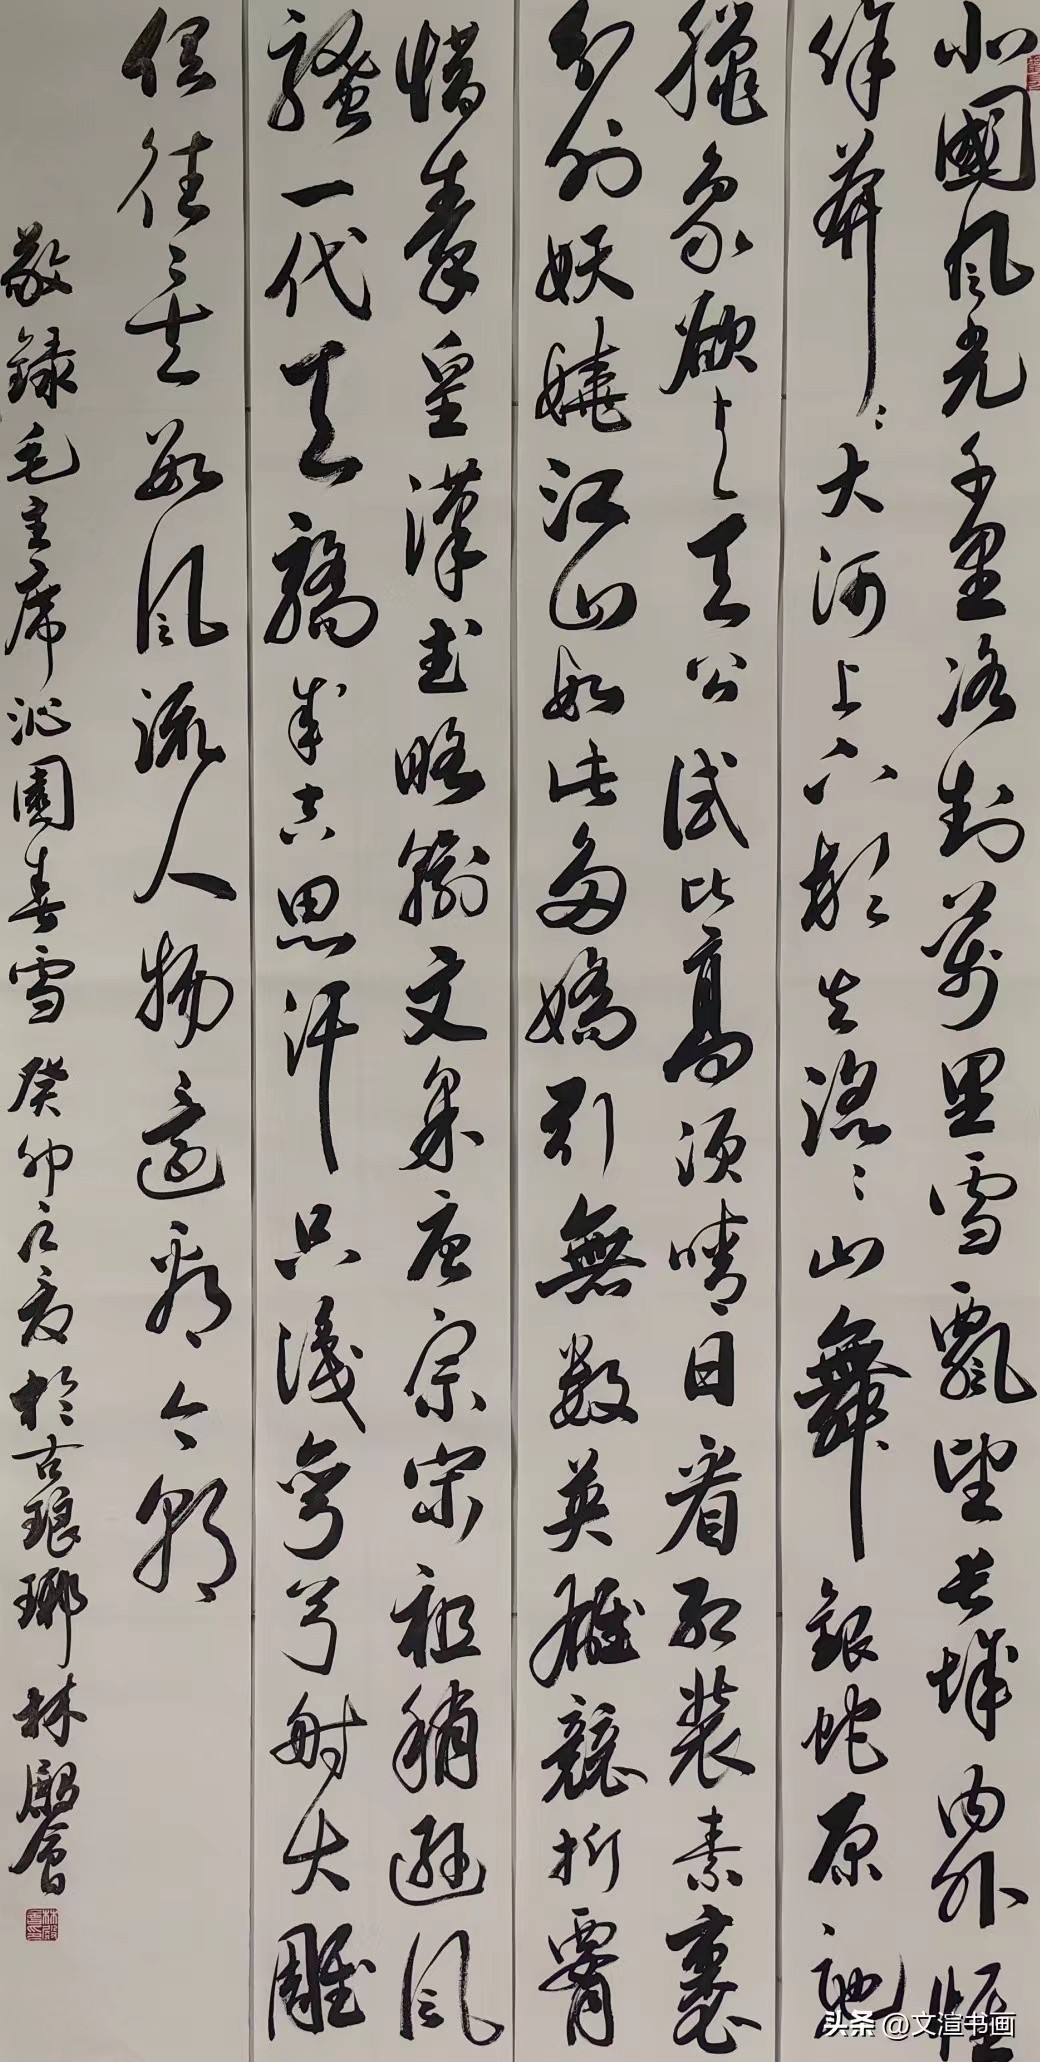 北國風光千里冰封萬里雪飄望長城内外惟
餘莽〻大河上下頓失滔〻山舞銀蛇原馳
臘象欲與天公試比高須晴日看紅裝素裹
分外妖嬈江山如此多嬌引無數英雄競折腰
惜秦皇漢武略輸文采唐宗宋祖稍遜風
騷一代天驕成吉思汗只識彎弓射大雕
俱往矣數風流人物還看今朝
敬錄毛主席沁園春雪癸卯之夏於古琅琊林殿會
头条 @文渲书画